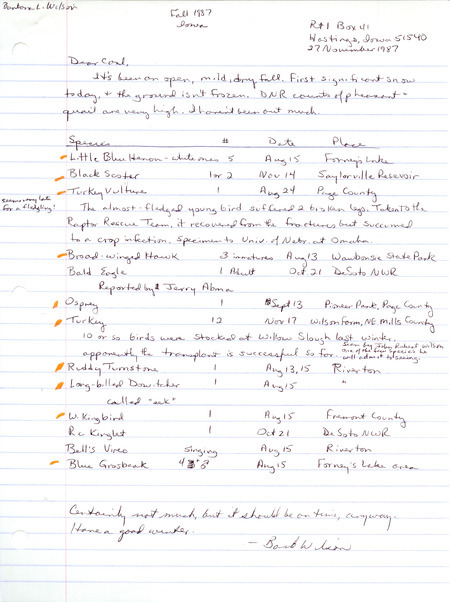 Barbara L. Wilson
Fall 1987
Iowa
R#1 Box 41
Hastings, Iowa 51540
27 November 1987
Dear Carl,
It's been an open, mild, dry fall. First significant snow
today, & the ground isn't frozen. DNR counts of pheasant &
quail are very high. I haven't been out much.
Species # Date Place
Little Blue Heron - white ones 5 Aug 15 Forney's Lake
Black Scoter 1 or 2 Nov 14 Saylorville Reservoir
Turkey Vulture 1 Aug 24 Page County
seems very late
for a fledgling!
The almost-fledged young bird suffered 2 broken legs. Taken to the
Raptor Rescue Team, it recovered from the fractures but succumed
to a crop infection. Specimen to Univ. of Nebr. at Omaha.
Broad-winged Hawk 3 immatures Aug 13 Waubonsie State Park
Bald Eagle 1 Adult Oct 21 DeSoto NWR
Reported by Jerry Abma
Osprey 1 Sept 13 Pioneer Park, Page County
Turkey 12 Nov 17 Wilson Farm, NE Mills County
10 or so birds were stocked at Willow Slough last winter.
apparently the transplant is successful so far.
Seen by John Robert Wilson
one of the few species he
will admit to seeing.
Ruddy Turnstone 1 Aug 13, 15 Riverton
Long-billed Dowitcher 1 Aug 15 "
called "eek"
W. Kingbird 1 Aug 15 Fremont County
R c Kinglet 1 Oct 21 DeSoto NWR
Bell's Vireo singing Aug 15 Riverton
Blue Grosbeak 4 Aug 15 Forney's Lake area
Certainly not much, but it should be on time, anyway.
Have a good winter.
— Barb Wilson